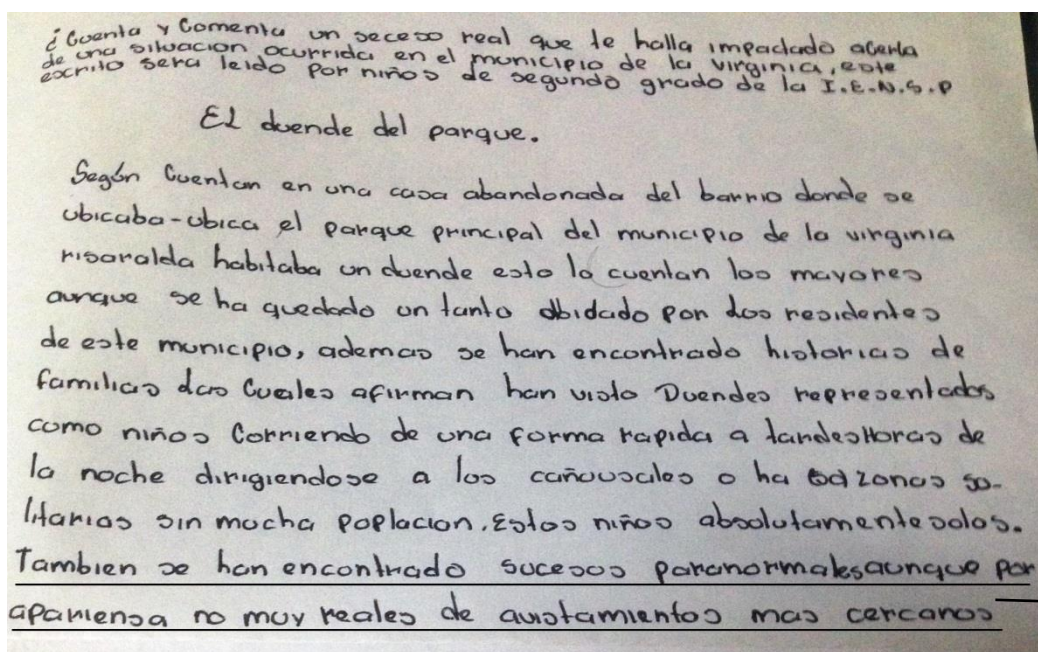 ¿Cuenta y Comenta un seceso real que te halla impactado acerla
de una situacion ocurrida en el municipio de la virginia, este
escrito sera leido por niños de segundo grado de la I.E.N.S.P
El duende del parque.
Según Cuentan en una casa abandonada del barrio donde se
ubicaba-ubica el parque principal del municipio de la virginia
risaralda habitaba un duende esto lo cuentan los mayores
aunque se ha quedado un tanto olbidado por los residentes
de este municipio, ademas se han encontrado historias de
familias las Cuales afirman han visto Duendes representados
como niños Corriendo de una forma rapida a tardes Horas de
la noche dirigiendose a los cañ o ha zonas so-
litarias sin mucha poplacion. Estos niños absolutamente solos.
Tambien se han encontrado sucesos paranormales aunque por
apariensa no muy reales de avistamientos mas cercanos